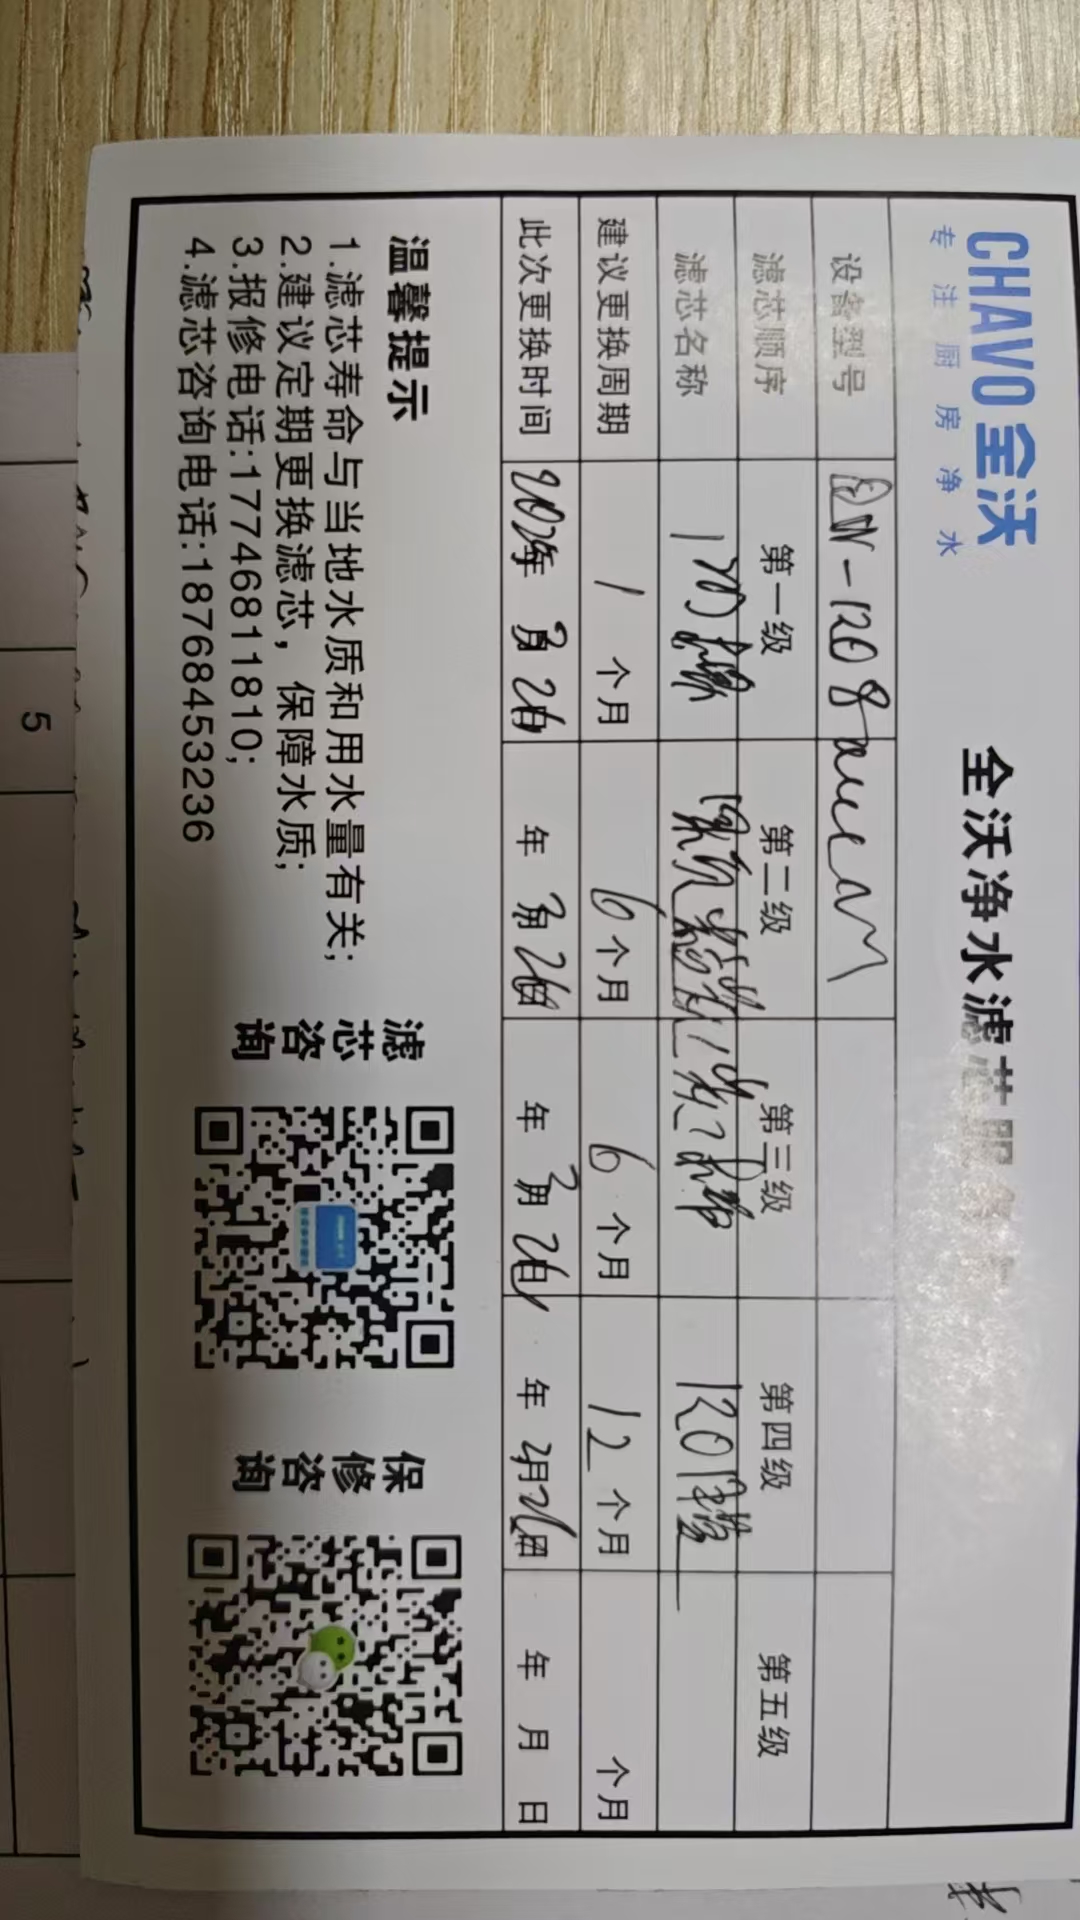 CHAVO 全沃
专注厨房净水
全沃净水滤芯服务
设备型号
滤芯顺序 第一级 第二级 第三级 第四级 第五级
滤芯名称
建议更换周期 1个月 6个月 6个月 12个月 个月
此次更换时间 年3月26日 年3月26日 年3月26日 年3月26日 年 月 日
温馨提示
1.滤芯寿命与当地水质和用水量有关;
2.建议定期更换滤芯，保障水质;
3.报修电话:17746811810;
4.滤芯咨询电话:18768453236
滤芯咨询
保修咨询
5